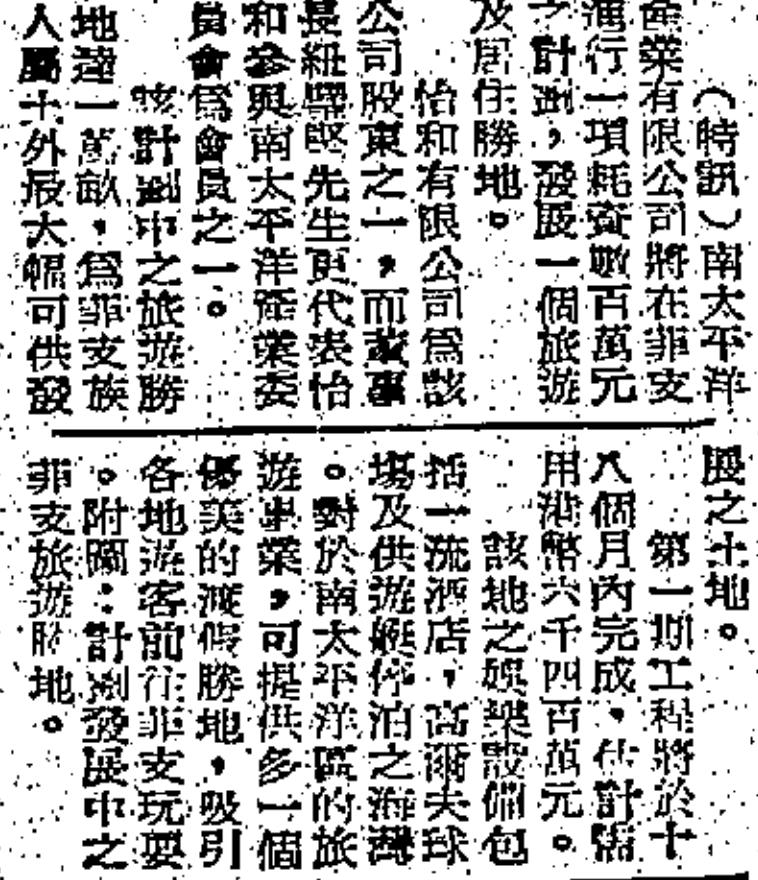 （時訊）南太平洋
產業有限公司將在菲支
進行一項耗資數百萬元
之計劃，發展一個旅遊
及居住勝地。
怡和有限公司爲該
公司股東之一，而董事
長紐璧堅先生更代表怡
和參與南太平洋產業委
員會爲會員之一。
該計劃中之旅遊勝
地達一萬畝，爲菲支族
人屬土外最大幅可供發
展之土地。
第一期工程將於十
八個月內完成，估計需
用港幣六千四百萬元。
該地之娛樂設備包
括一流酒店，高爾夫球
場及供遊艇停泊之海灣
。對於南太平洋區的旅
遊事業，可提供多一個
優美的渡假勝地，吸引
各地遊客前往菲支玩耍
。附圖：計劃發展中之
菲支旅遊勝地。